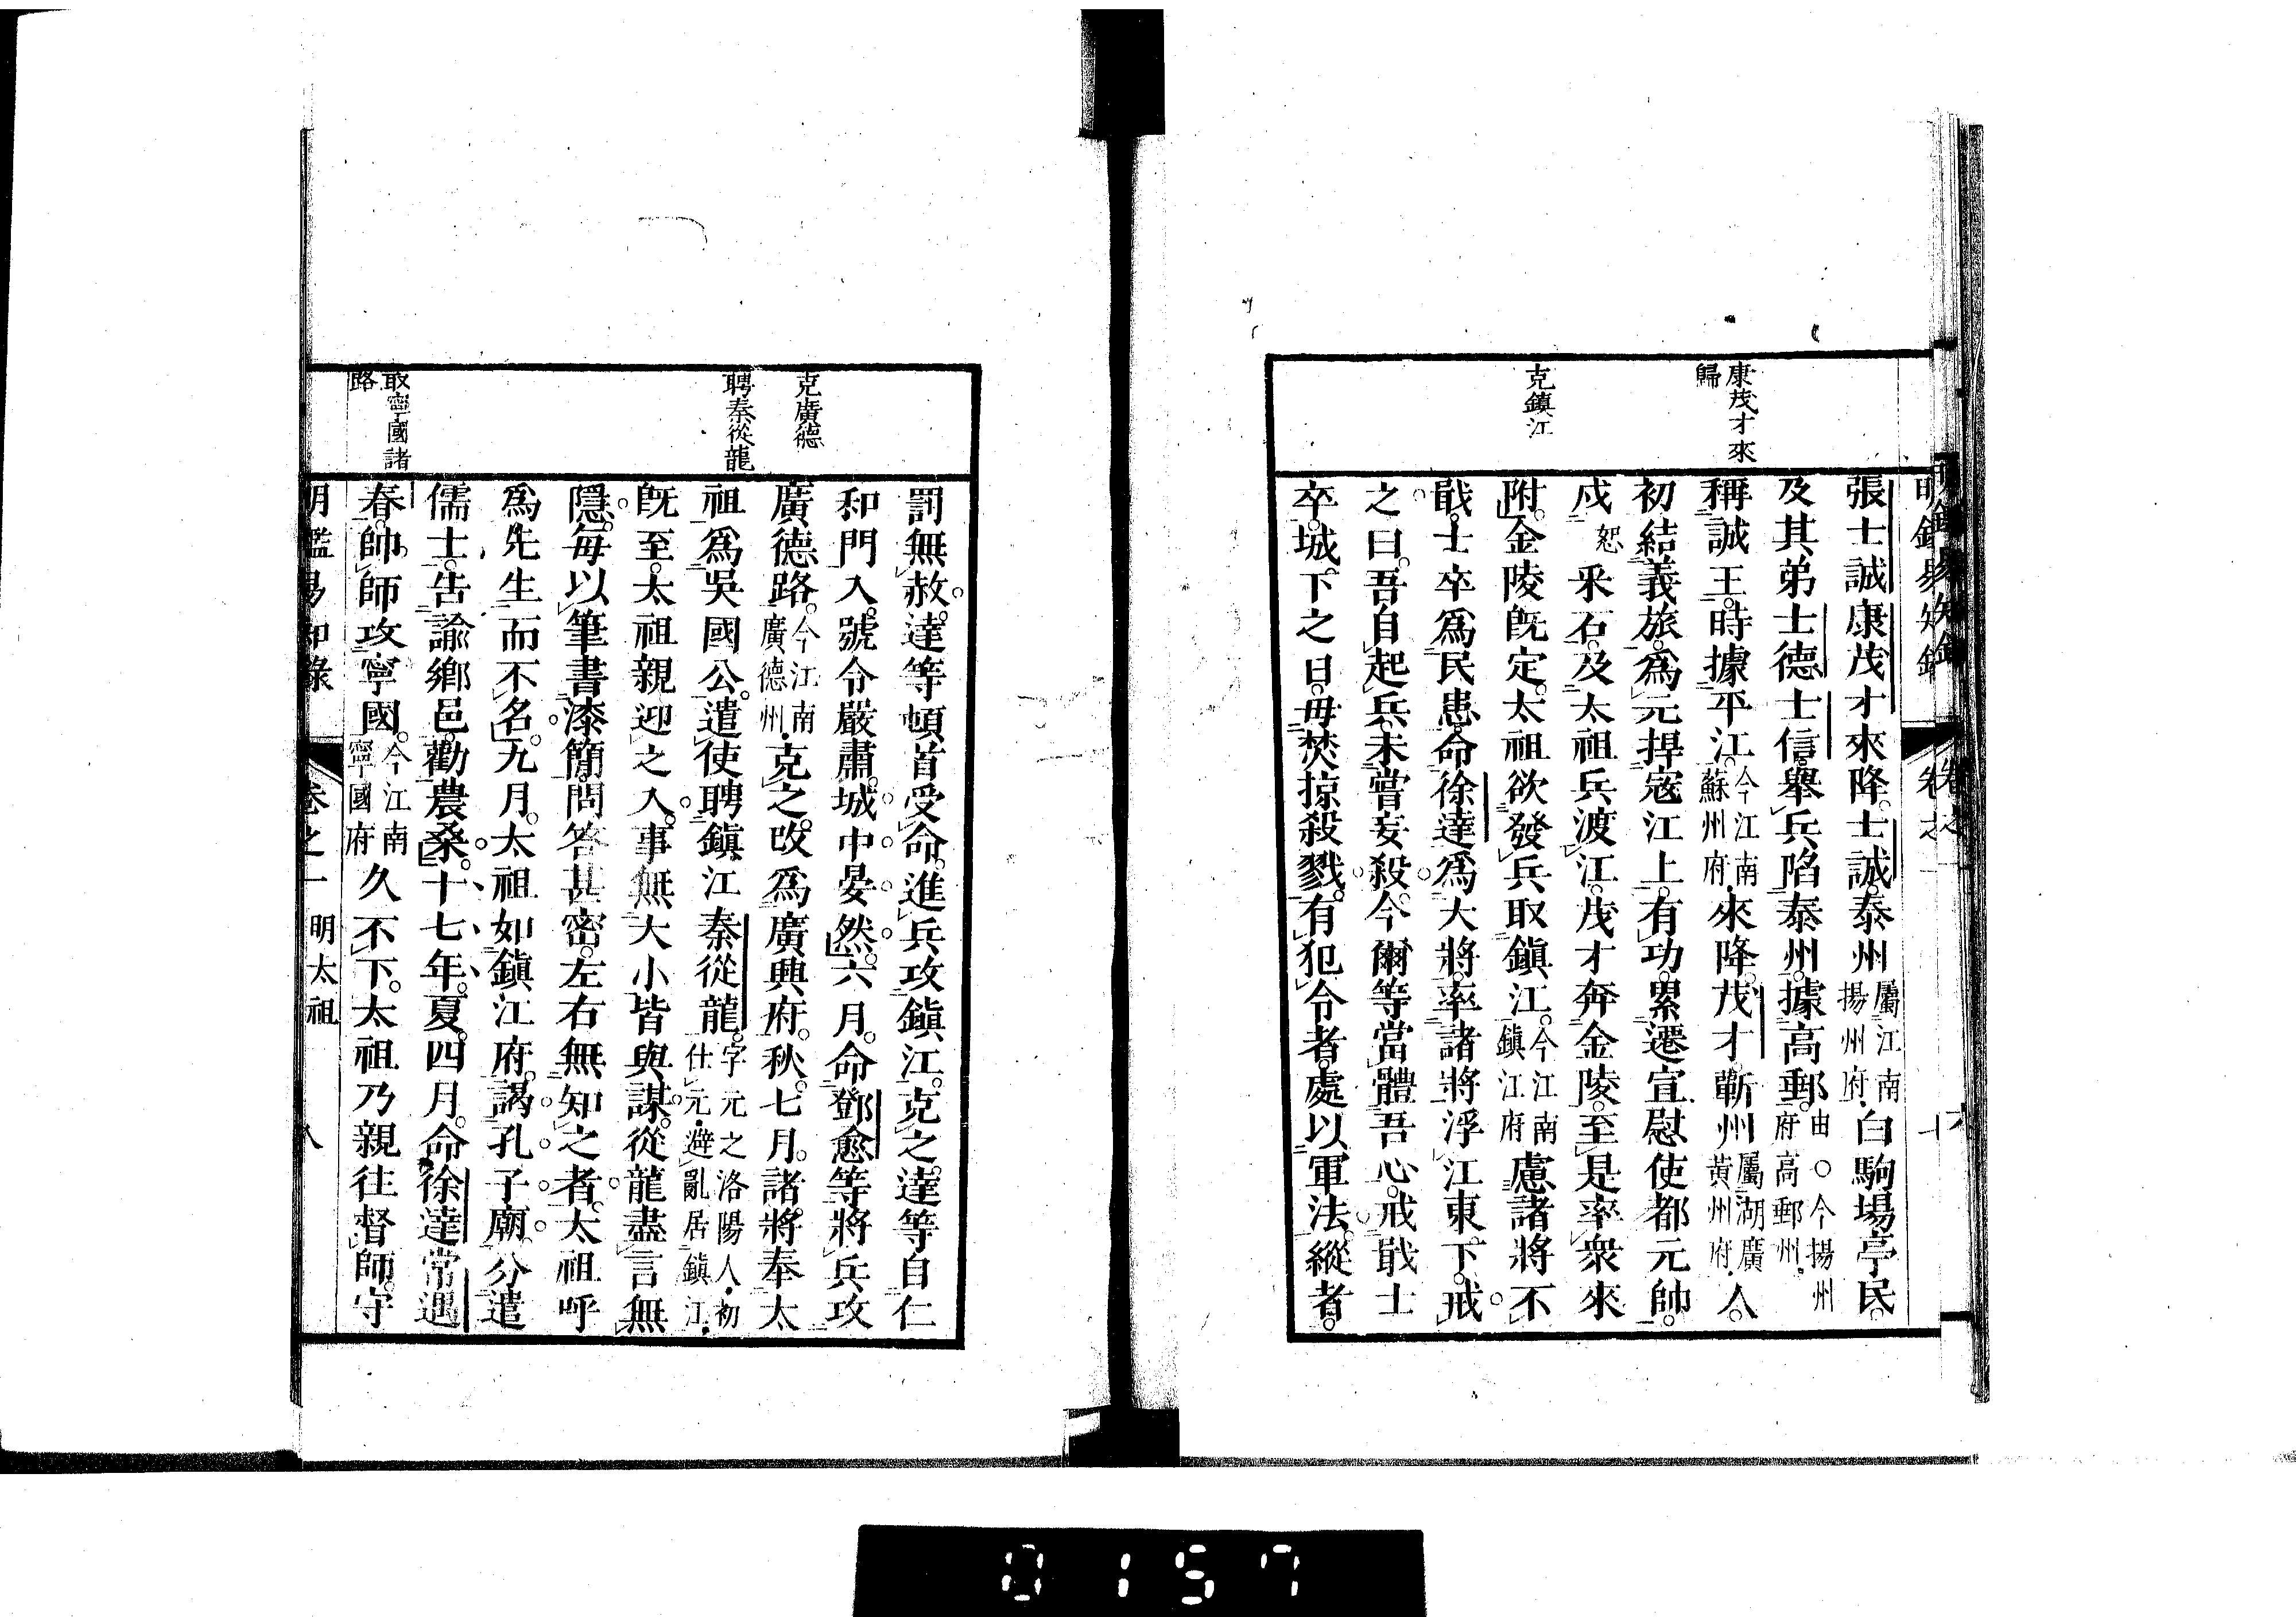 康茂才來
歸
克鎮江
張士誠康茂才來降。士誠。泰州屬江南揚州府.白駒場亭民。
及其弟士德士信。舉兵陷泰州。據高郵。由○今揚州府高郵州.
稱誠王。時據平江。今江南蘇州府.來降。茂才。蘄州屬湖廣黃州府.人。
初結義旅。爲元捍寇江上。有功。累遷宣慰使都元帥。
戍恕采石。及太祖兵渡江。茂才奔金陵。至是率衆來
附。金陵既定。太祖欲發兵取鎮江。今江南鎮江府慮諸將不
戢。士卒爲民患。命徐達爲大將。率諸將浮江東下。戒
之曰。吾自起兵。未嘗妄殺。今爾等當體吾心。戒戢士
卒。城下之日。毋焚掠殺戮。有犯令者。處以軍法。縱者。
克廣德
聘秦從龍
取寧國諸
路
罰無赦。達等頓首受命。進兵攻鎮江。克之。達等自仁
和門入。號令嚴肅。城中晏然。六月。命鄧愈等將兵攻
廣德路。今江南廣德州.克之。改爲廣興府。秋。七月。諸將奉太
祖爲吳國公。遣使聘鎮江秦從龍。字元之洛陽人.初仕元.避亂居鎮江.
既至。太祖親迎之入。事無大小皆與謀。從龍盡言無
隱。每以筆書漆簡。問答甚密。左右無知之者。太祖呼
爲先生而不名。九月。太祖如鎮江府。謁孔子廟。分遣
儒士。告諭鄉邑。勸農桑。十七年。夏。四月。命徐達常遇
春。帥師攻寧國。今江南寧國府久不下。太祖乃親往督師。守
明鑑易知錄 卷之一 明太祖 八
0157